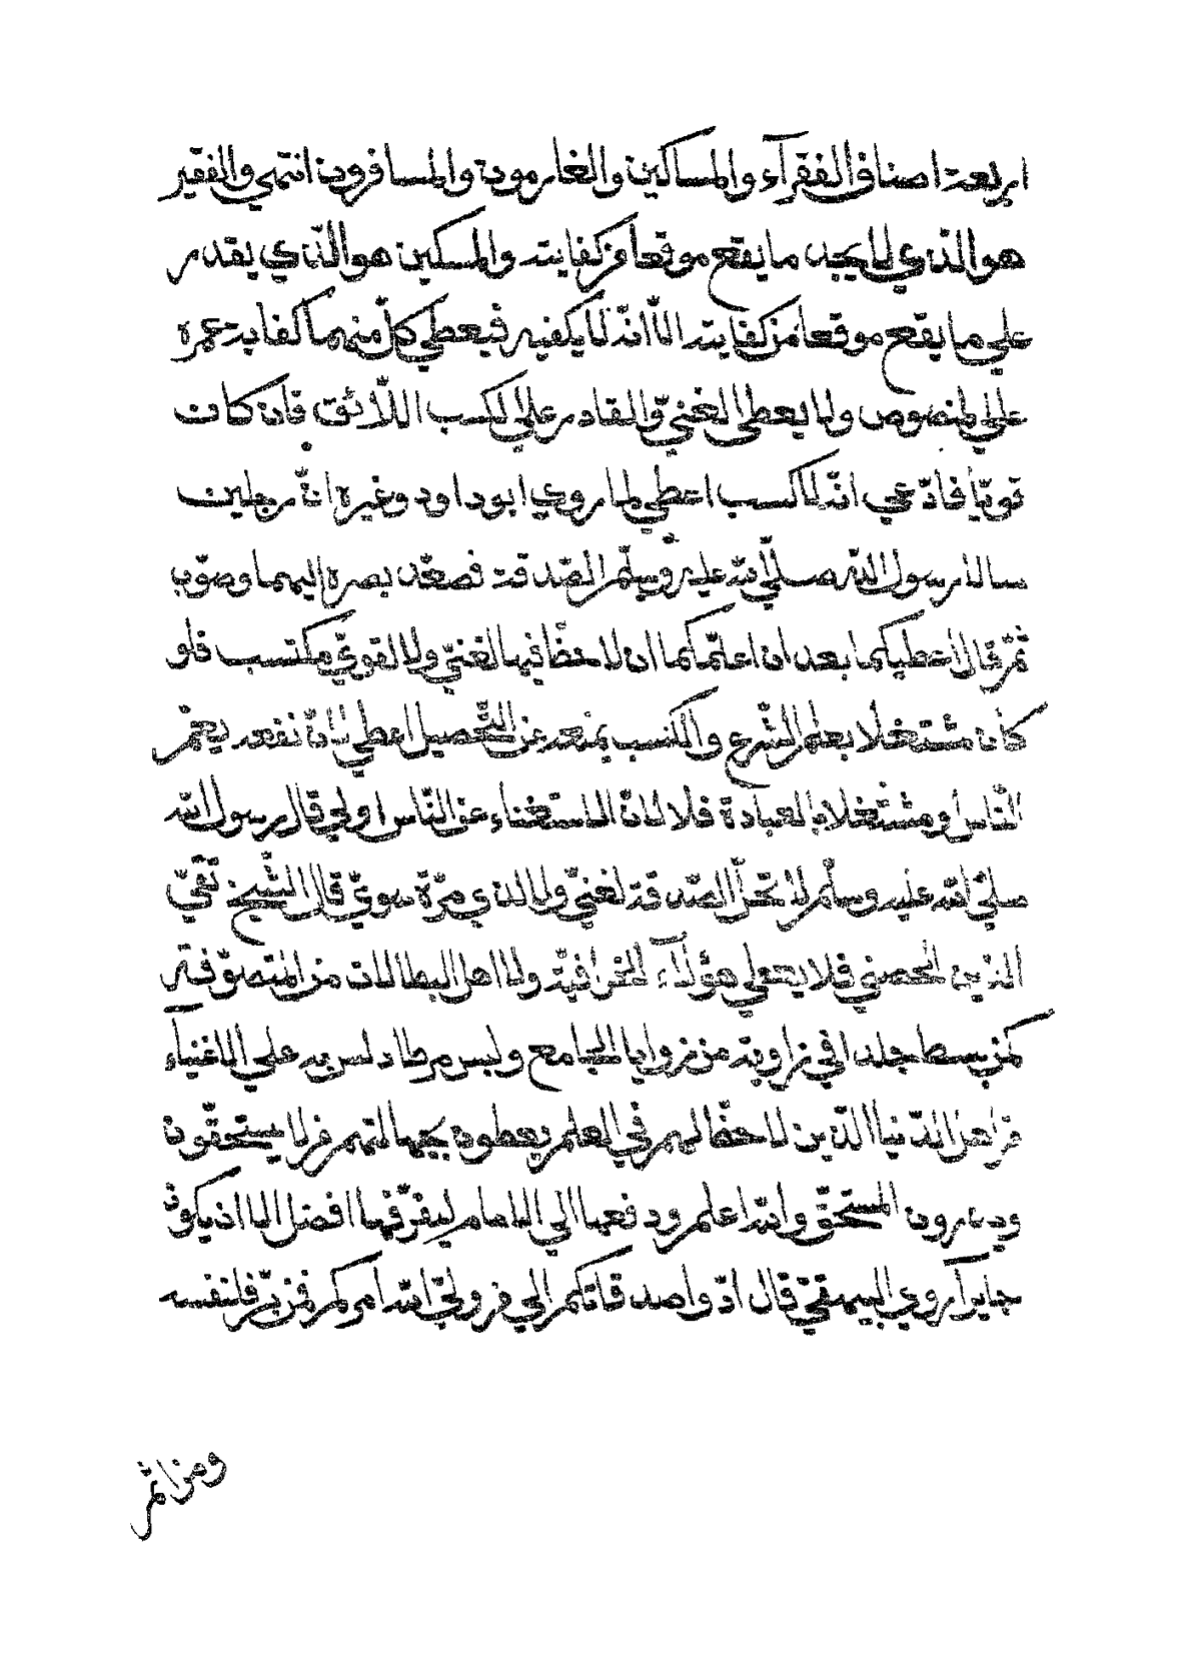 اربعة اصناف الفقرآء والمساكين والغارمون والمسافرون انتهي والفقير
هو الذي لا يجد ما يقع موقعا من كفايته والمسكين هو الذي يقدر
علي ما يقع موقعا من كفايته الا انه لا يكفيه فيعطي كل منهما كفاية عمره
علي المنصوص ولا يعطي الغني والقادر علي الكسب اللائق فان كان
قويا فادعي انه لا كسب اعطي لما روي ابو داود وغيره ان رجلين
سالا رسول الله صلي الله عليه وسلم الصدقة فصعد بصره اليهما وصوب
ثم قال اعطيكما بعد ان اعلمكما ان لا حظ فيها لغني ولا لقوي مكتسب فلو
كان مشتغلا بعلم الشرع والكسب يمنعه عن التحصيل اعطي لان نفعه يعم
الناس او مشتغلا بالعبادة فلا لان الاستغناء عن الناس اولي قال رسول الله
صلي الله عليه وسلم لا تحل الصدقة لغني ولا لذي مرة سوي قال الشيخ تقي
الدين الحصني فلا يعطي هؤلآء الخرافية ولا اهل البطالات من المتصوفة
كمن بسط جلدا في زاوية من زوايا الجامع ولبس مرطا دلس به علي الاغنيآء
من اهل الدنيا الذين لا حظ لهم في العلم يعطون بجهالتهم من لا يستحقون
ويذرون المستحق والله اعلم ودفعها الي الامام ليفرقها افضل الا ان يكون
جايرآ روي البيهقي قال ادوا صدقاتكم الي من ولي الله امركم فمن بر فلنفسه
ومن اثم